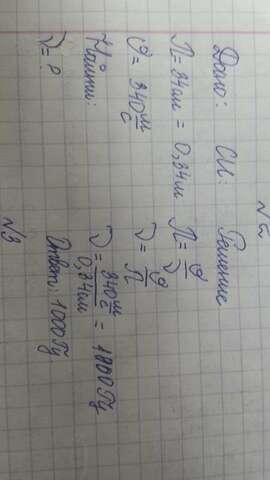 №2
Дано: СИ: Решение
Л = 34 см = 0,34 м Л = υ/ν
υ = 340 м/с ν = υ/Л
Найти: ν = 340 м/с / 0,34 м = 1000 Гц
ν = ? Ответ: 1000 Гц
№3